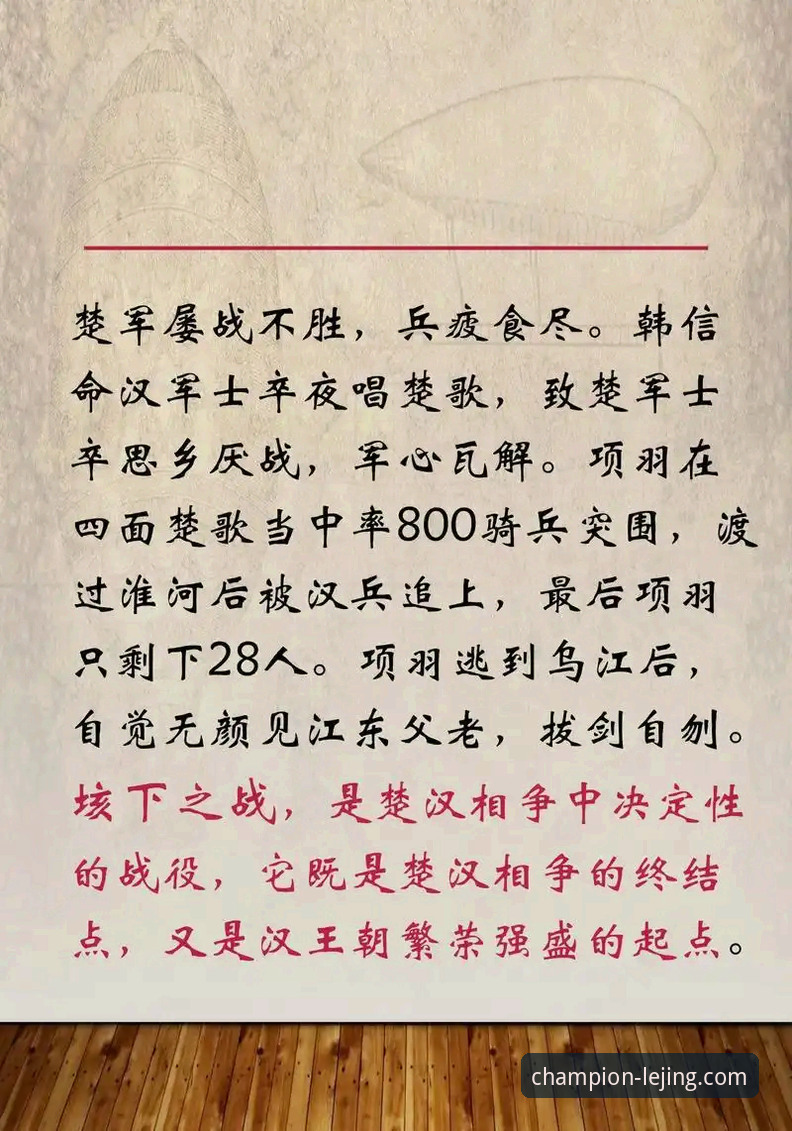 楚军屡战不胜，兵疲食尽。韩信
命汉军士卒夜唱楚歌，致楚军士
卒思乡厌战，军心瓦解。项羽在
四面楚歌当中率800骑兵突围，渡
过淮河后被汉兵追上，最后项羽
只剩下28人。项羽逃到乌江后，
自觉无颜见江东父老，拔剑自刎。
垓下之战，是楚汉相争中决定性
的战役，它既是楚汉相争的终结
点，又是汉王朝繁荣强盛的起点。
champion-lejing.com